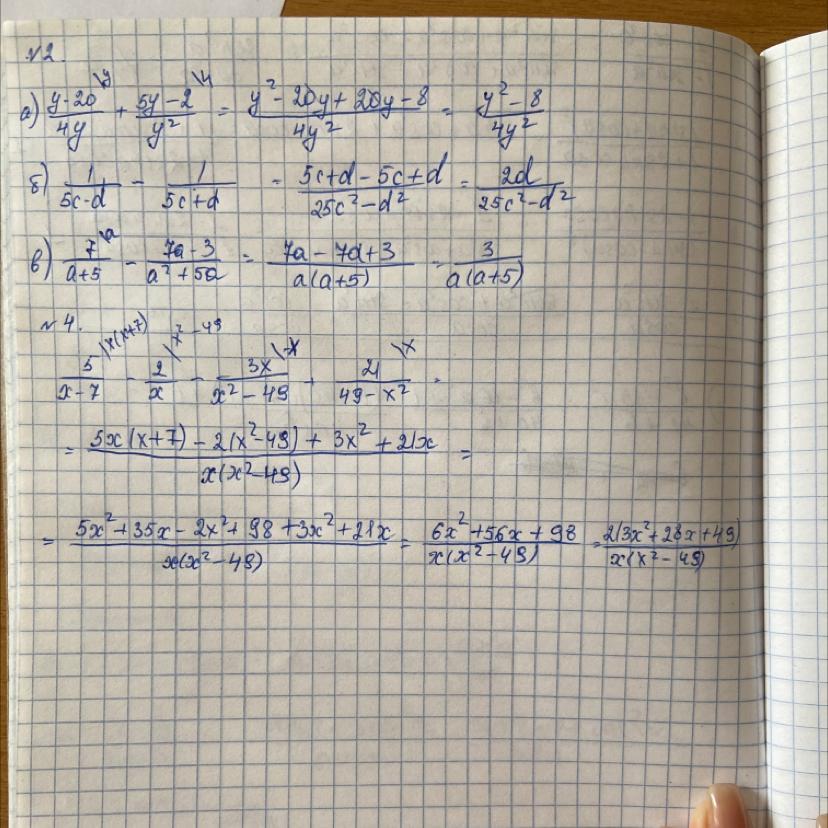 №2.
а) \frac{y-20}{4y}^{\y} + \frac{5y-2}{y^2}^{\4} = \frac{y^2-20y+20y-8}{4y^2} = \frac{y^2-8}{4y^2}
б) \frac{1}{5c-d} - \frac{1}{5c+d} = \frac{5c+d-5c+d}{25c^2-d^2} = \frac{2d}{25c^2-d^2}
в) \frac{7}{a+5}^{\a} - \frac{7a-3}{a^2+5a} = \frac{7a-7a+3}{a(a+5)} = \frac{3}{a(a+5)}
№4.
\frac{5}{x-7}^{\x(x+7)} - \frac{2}{x}^{\x^2-49} - \frac{3x}{x^2-49}^{\-x} + \frac{21}{49-x^2}^{\x} =
= \frac{5x(x+7)-2(x^2-49)+3x^2+21x}{x(x^2-49)} =
= \frac{5x^2+35x-2x^2+98+3x^2+21x}{x(x^2-49)} = \frac{6x^2+56x+98}{x(x^2-49)} = \frac{2(3x^2+28x+49)}{x(x^2-49)}